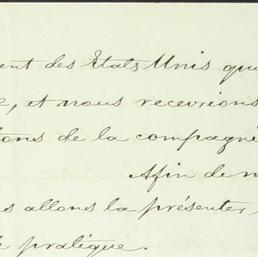 ent des États Unis qu
, et nous recevrions
tons de la compagnie
Afin de n
s allons la présenter,
pratique.